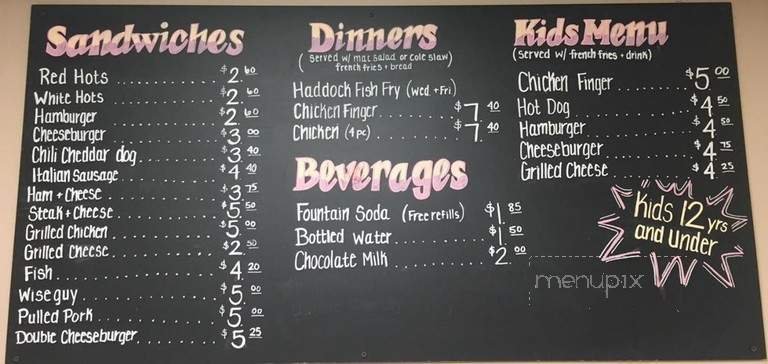 Sandwiches
Red Hots $2.60
White Hots $2.60
Hamburger $2.60
Cheeseburger $3.00
Chili Cheddar dog $3.40
Italian Sausage $4.40
Ham + Cheese $3.75
Steak + Cheese $5.50
Grilled Chicken $5.00
Grilled Cheese $2.50
Fish $4.20
Wise guy $5.00
Pulled Pork $5.00
Double Cheeseburger $5.25
Dinners
(served w/ mac salad or cole slaw)
french fries + bread
Haddock Fish Fry (Wed. + Fri)
Chicken Finger $7.40
Chicken (4 pc) $7.40
Beverages
Fountain Soda (Free refills) $1.85
Bottled Water $1.50
Chocolate Milk $2.00
Kids Menu
(served w/ french fries + drink)
Chicken Finger $5.00
Hot Dog $4.50
Hamburger $4.50
Cheeseburger $4.75
Grilled Cheese $4.25
Kids 12 yrs
and under
menupix